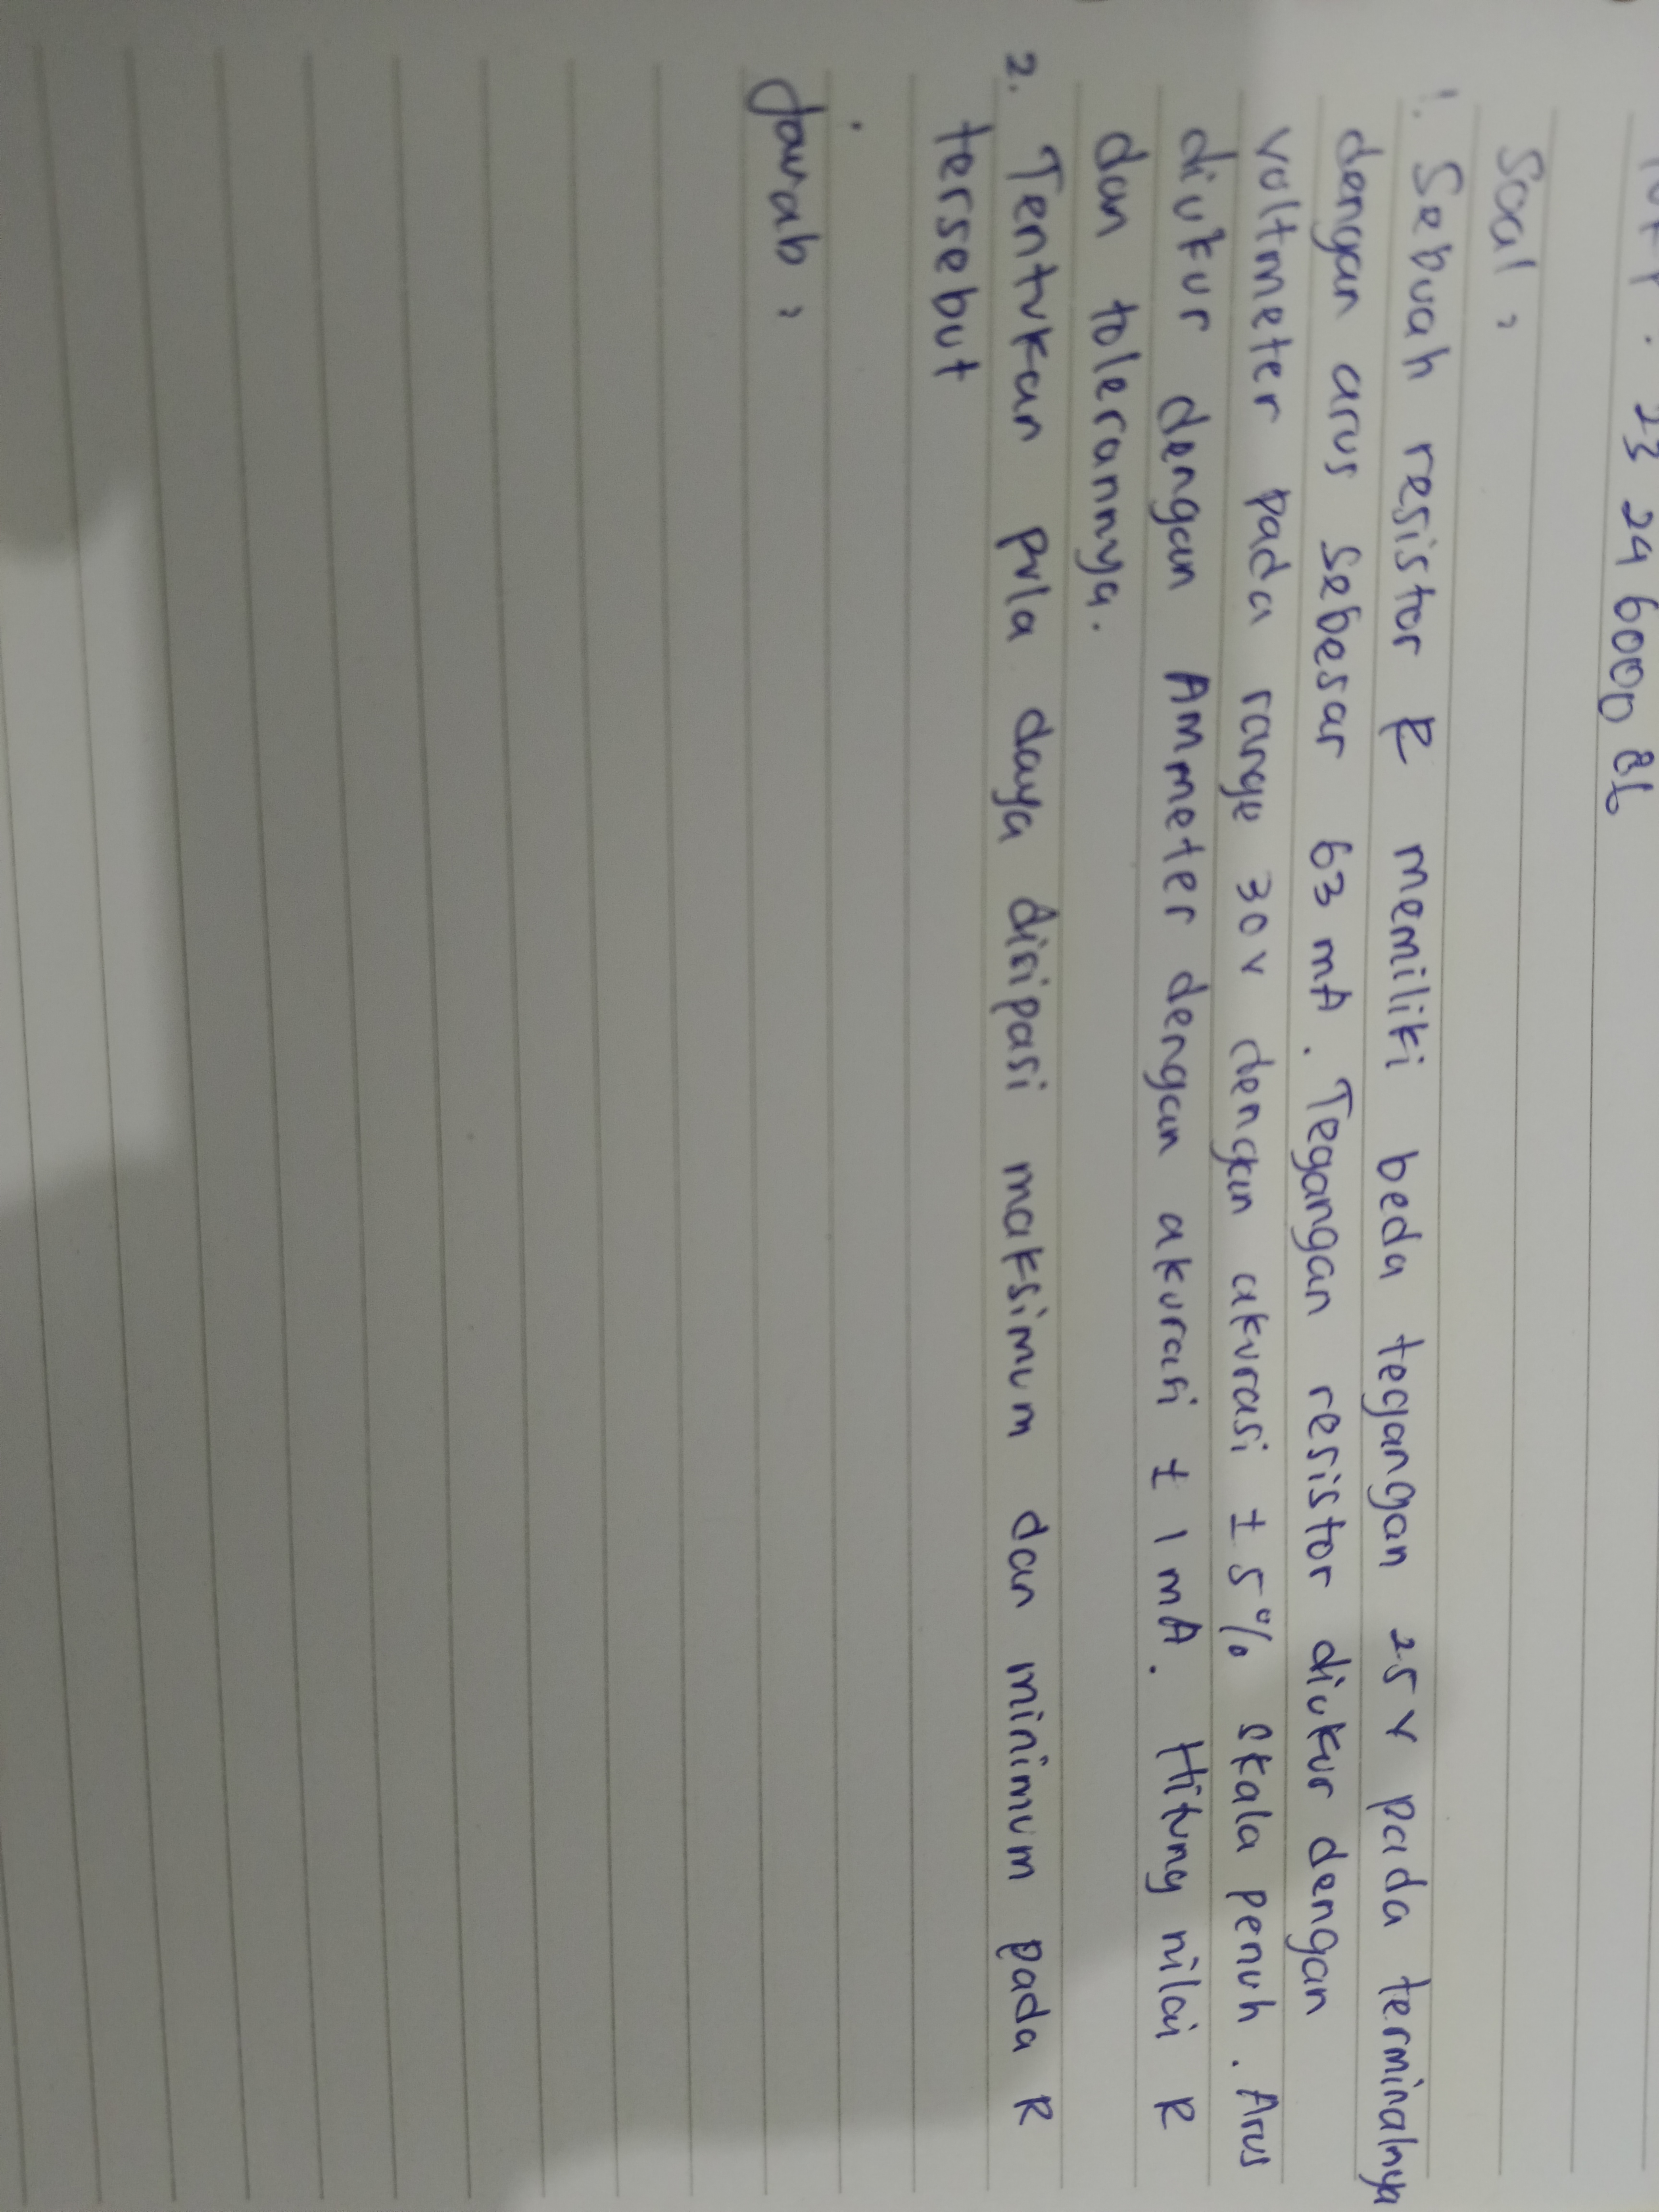 23 24 6000 86
Soal :
1. Sebuah resistor R memiliki beda tegangan 25 V pada terminalnya
dengan arus sebesar 63 mA. Tegangan resistor diukur dengan
voltmeter pada range 30 V dengan akurasi ± 5% skala penuh. Arus
diukur dengan Ammeter dengan akurasi ± 1 mA. Hitung nilai R
dan tolerannya.
2. Tentukan pula daya disipasi maksimum dan minimum pada R
tersebut
Jawab :